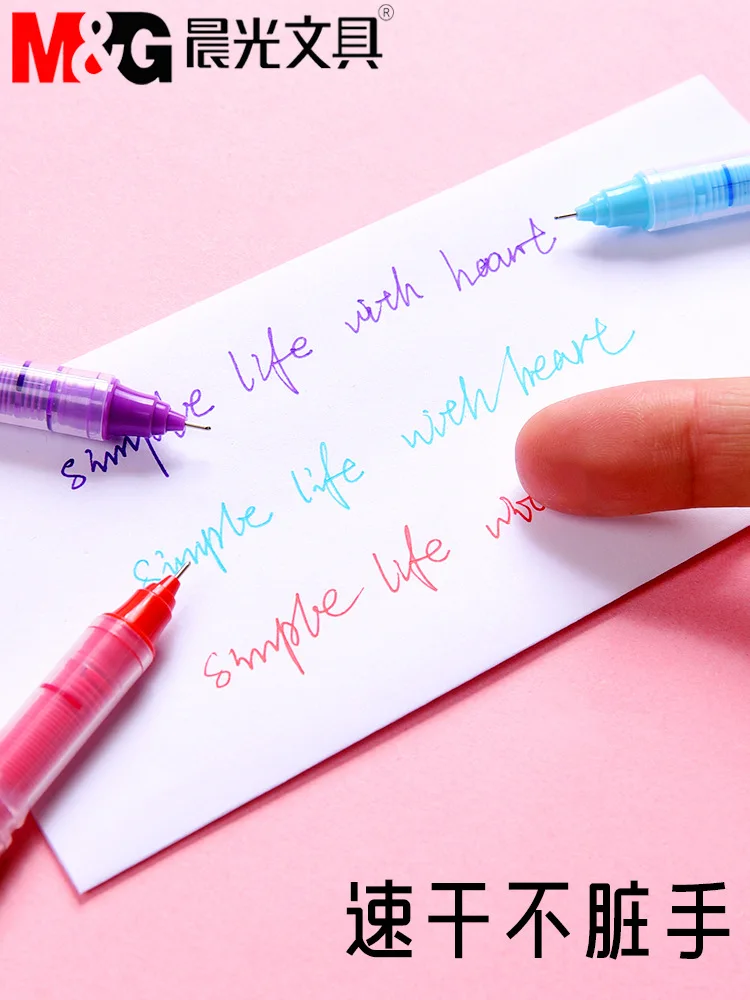 M&G 晨光文具®
simple life with heart
simple life with heart
simple life wi
速干不脏手